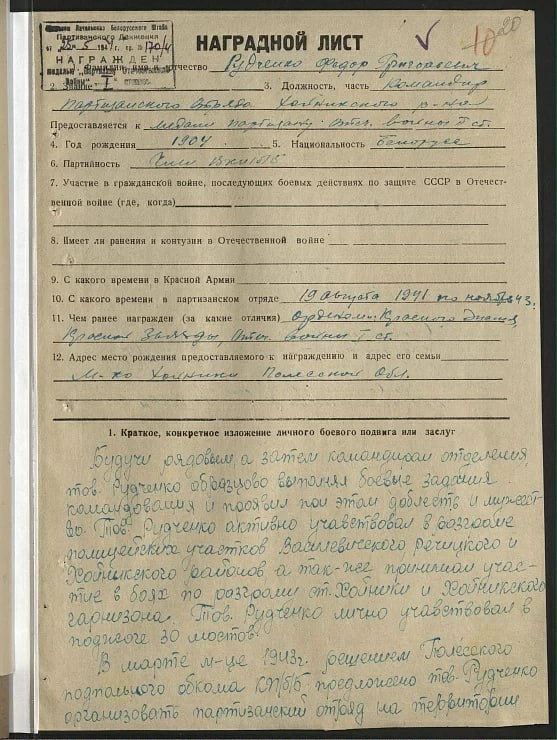 Приказом Начальника Белорусского Штаба
Партизанского Движения
НАГРАЖДЕН
медалью „Партизану Отечественной
Войны" I степени.
20
НАГРАДНОЙ ЛИСТ
1. Фамилия, имя и отчество Рудченко Федор Григорьевич
2. Звание 3. Должность, часть Командир
партизанского отряда Хойникского р-на
Представляется к медали партизану Отеч. войны I ст.
4. Год рождения 1904 5. Национальность Белорусс
6. Партийность Член ВКП(б)Б
7. Участие в гражданской войне, последующих боевых действиях по защите СССР в Отечест-
венной войне (где, когда)
8. Имеет ли ранения и контузии в Отечественной войне
9. С какого времени в Красной Армии
10. С какого времени в партизанском отряде 19 августа 1941 по ноябрь 43.
11. Чем ранее награжден (за какие отличия) Орденом: Красного Знамя,
Красной Звезды Отеч. войны I ст.
12. Адрес место рождения предоставляемого к награждению и адрес его семьи
М-ко Хойники Полесской Обл.
1. Краткое, конкретное изложение личного боевого подвига или заслуг
Будучи рядовым а затем командиром отделения
тов. Рудченко образцово выполнял боевые задания
командования и проявил при этом доблесть и мужест-
во. Тов. Рудченко активно учавствовал в разгроме
полицейских участков Василевичского Речицкого и
Хойникского районов а так-же принимал учас-
тие в боях по разгрому ст. Хойники и Хойникского
гарнизона. Тов. Рудченко лично учавствовал в
поджоге 30 мостов.
В марте м-це 1943г. решением Полесского
подпального обкома КП(б)Б предложено тов. Рудченко
организовать партизанский отряд на территории